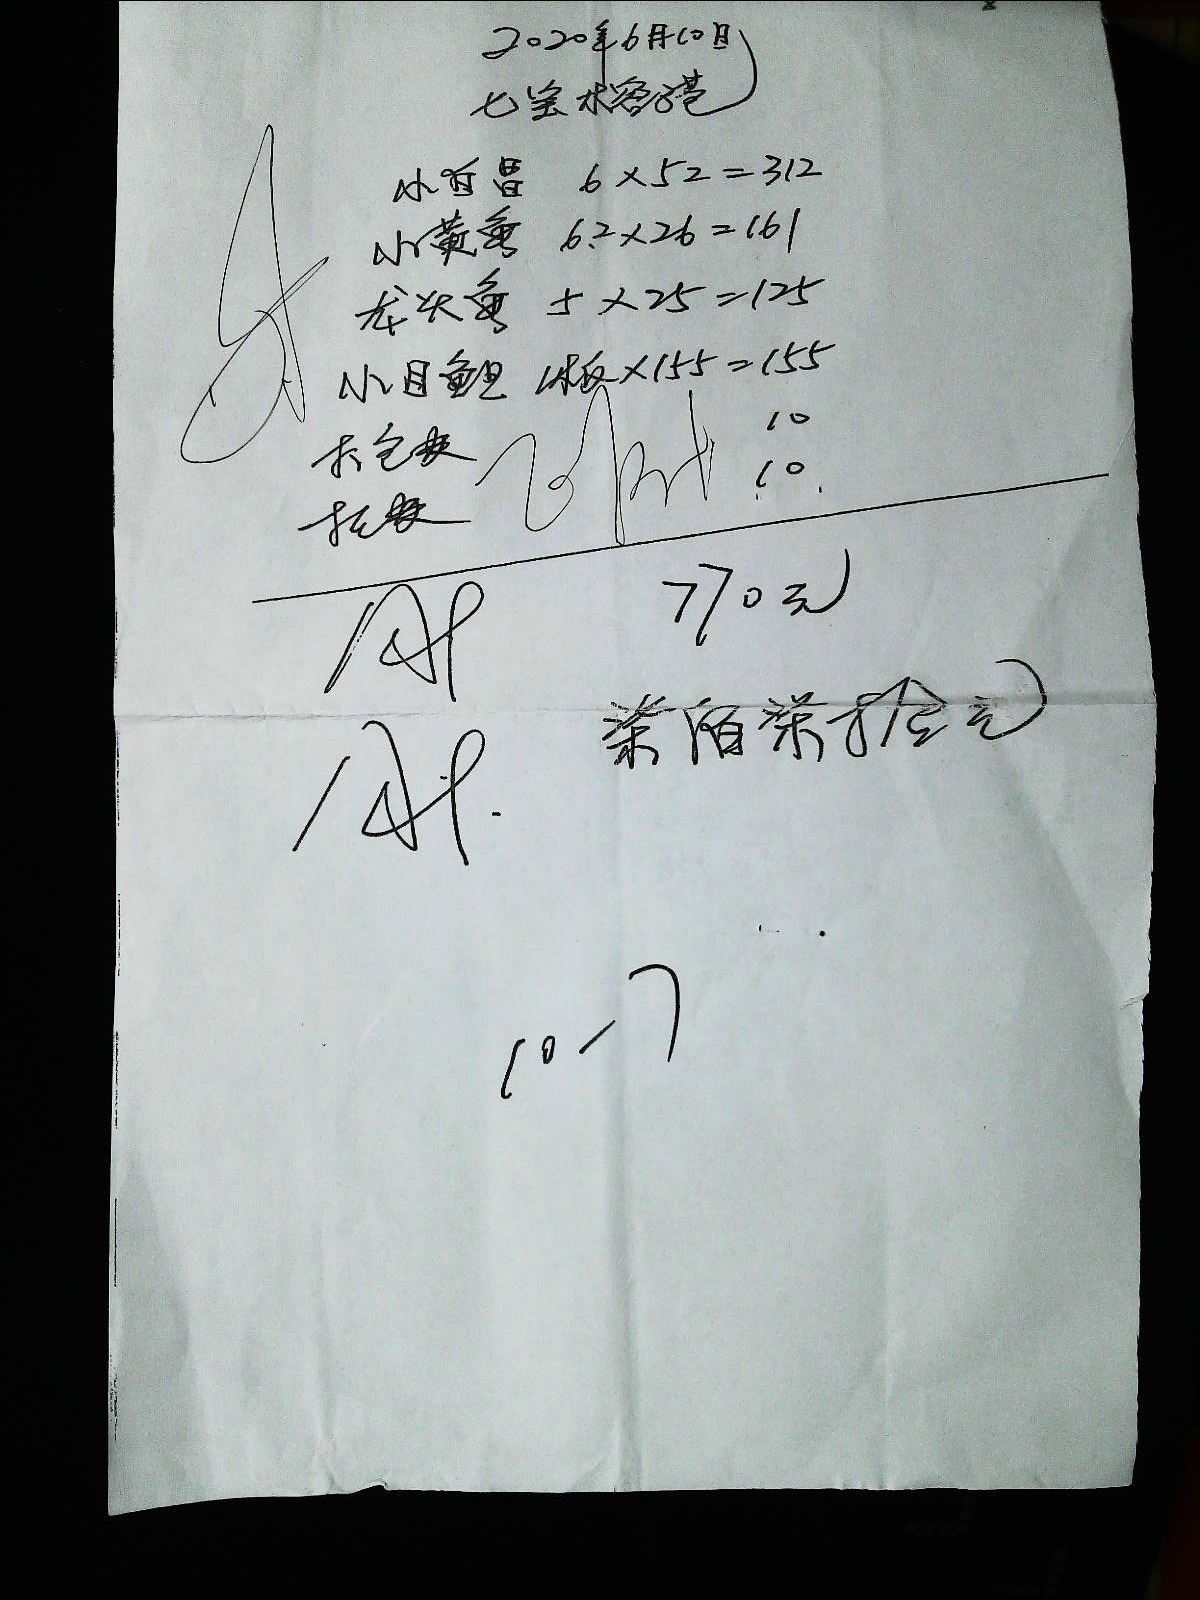 2020年6月10日
七宝水
小百昌 6×52=312
小黄鱼 6.2×26=161
龙头鱼 5×25=125
小目鱼旦 1板×155=155
打包 10
10
770元
柒佰柒拾元
10-7